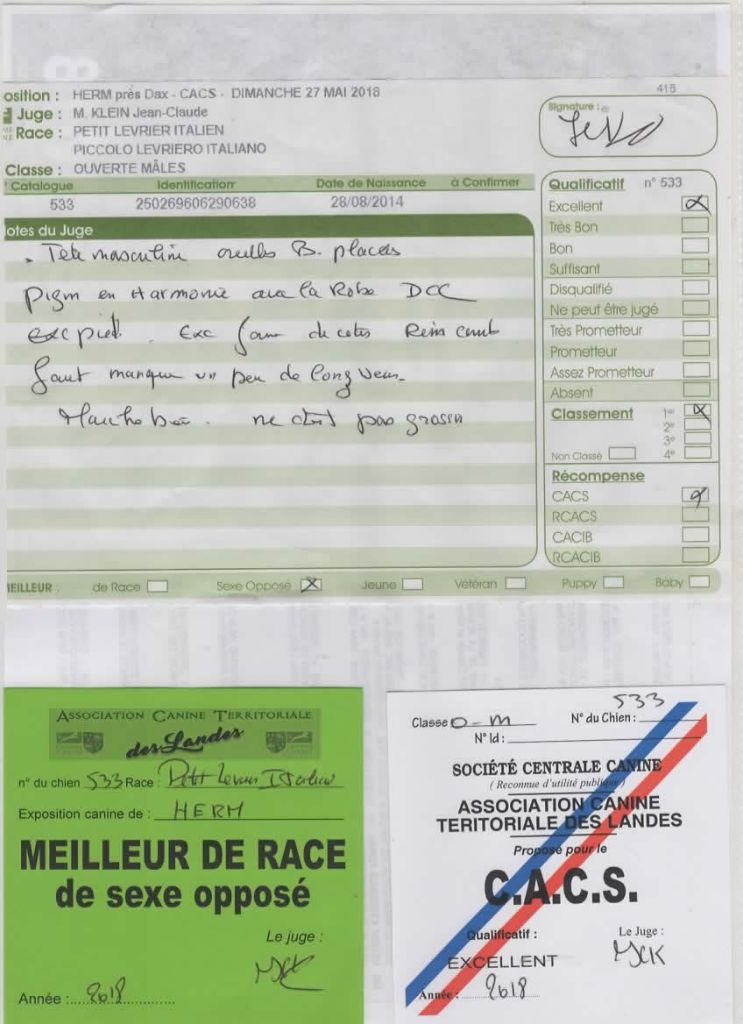 osition : HERM près Dax - CACS - DIMANCHE 27 MAI 2018
415
Juge : M. KLEIN Jean-Claude
Signature :
Race : PETIT LEVRIER ITALIEN
PICCOLO LEVRIERO ITALIANO
Classe : OUVERTE MÂLES
Catalogue Identification Date de Naissance à Confirmer
533 250269606290638 28/08/2014
otes du Juge
Tete masculine B. placés
Pigm en Harmonie la Robe
exc pied. Exc de cotes Rein
manque un peu de
ne doit pas grossir
Qualificatif n° 533
Excellent
Très Bon
Bon
Suffisant
Disqualifié
Ne peut être jugé
Très Prometteur
Prometteur
Assez Prometteur
Absent
Classement 1er
2e
3e
Non Classé 4e
Récompense
CACS
RCACS
CACIB
RCACIB
MEILLEUR : de Race Sexe Opposé Jeune Vétéran Puppy Baby
ASSOCIATION CANINE TERRITORIALE
des Landes
n° du chien 533 Race : Petit Levrier Italien
Exposition canine de : HERM
MEILLEUR DE RACE
de sexe opposé
Le juge :
MJCK
Année : 2018
533
Classe O-M N° du Chien :
N° Id :
SOCIÉTÉ CENTRALE CANINE
( Reconnue d'utilité publique )
ASSOCIATION CANINE
TERITORIALE DES LANDES
Proposé pour le
C.A.C.S.
Qualificatif : Le Juge :
EXCELLENT MJCK
Année : 2018